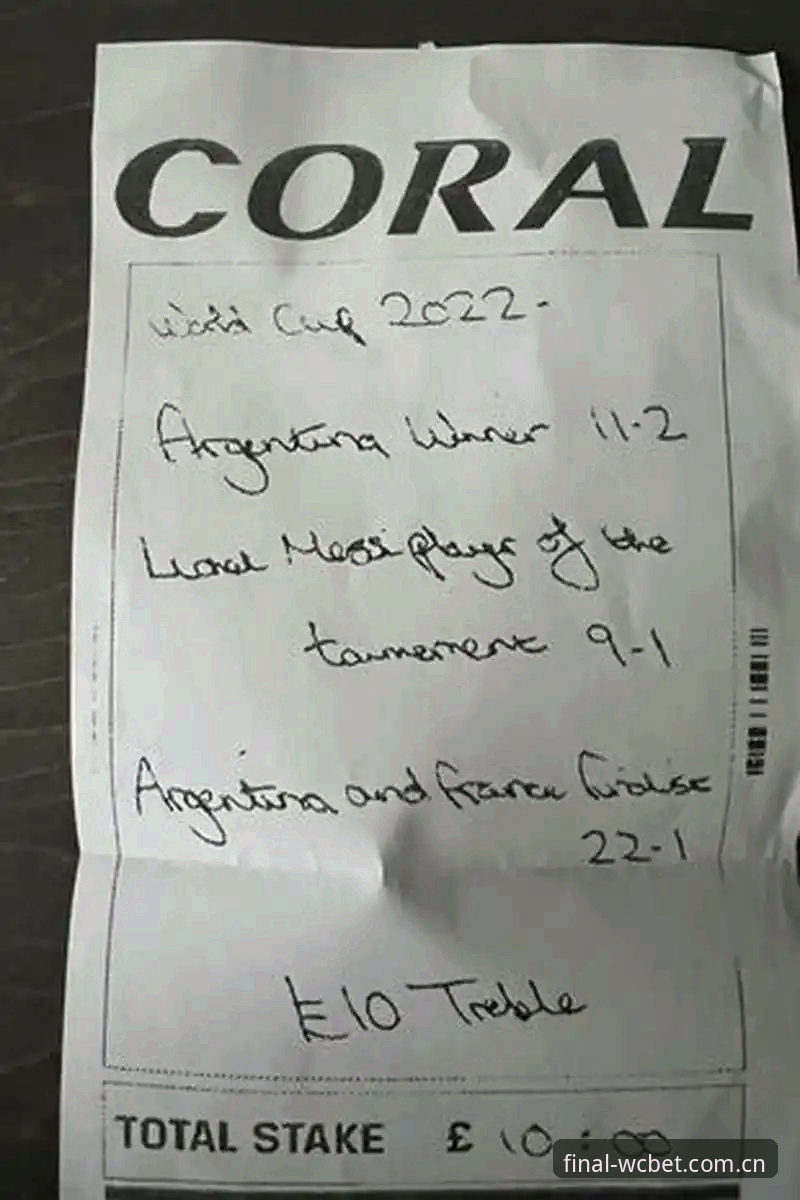 CORAL
World Cup 2022-
Argentina Winner 11-2
Lionel Messi player of the
tournement 9-1
Argentina and France finalist
22-1
£10 Treble
TOTAL STAKE £ 10:00
final-wcbet.com.cn